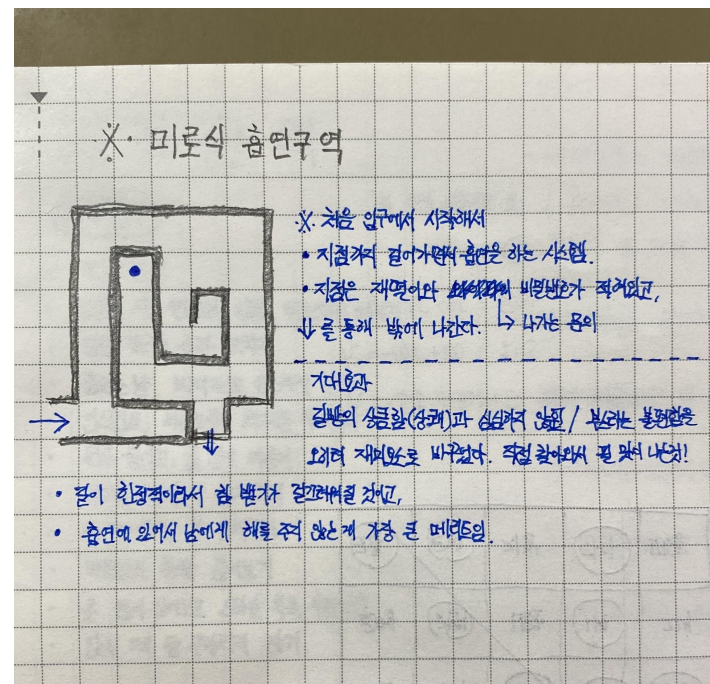 ※. 미로식 흡연구역
※. 처음 입구에서 시작해서
• 지점까지 걸어가면서 흡연을 하는 시스템.
• 지점은 재떨이와 비밀번호가 적혀있고,
⇓ 를 통해 밖에 나간다. ↳ 나가는 문의
기대효과
길빵의 상큼함(상쾌)과 심심하지 않함 / 부스라는 불편함을
오히려 재미요소로 바꾸었다. 직접 찾아와서 필 맛이 나는것!
• 길이 한정적이라서 침 뱉기가 껄끄러워질 것이고,
• 흡연에 있어서 남에게 해를 주지 않는게 가장 큰 메리트임.